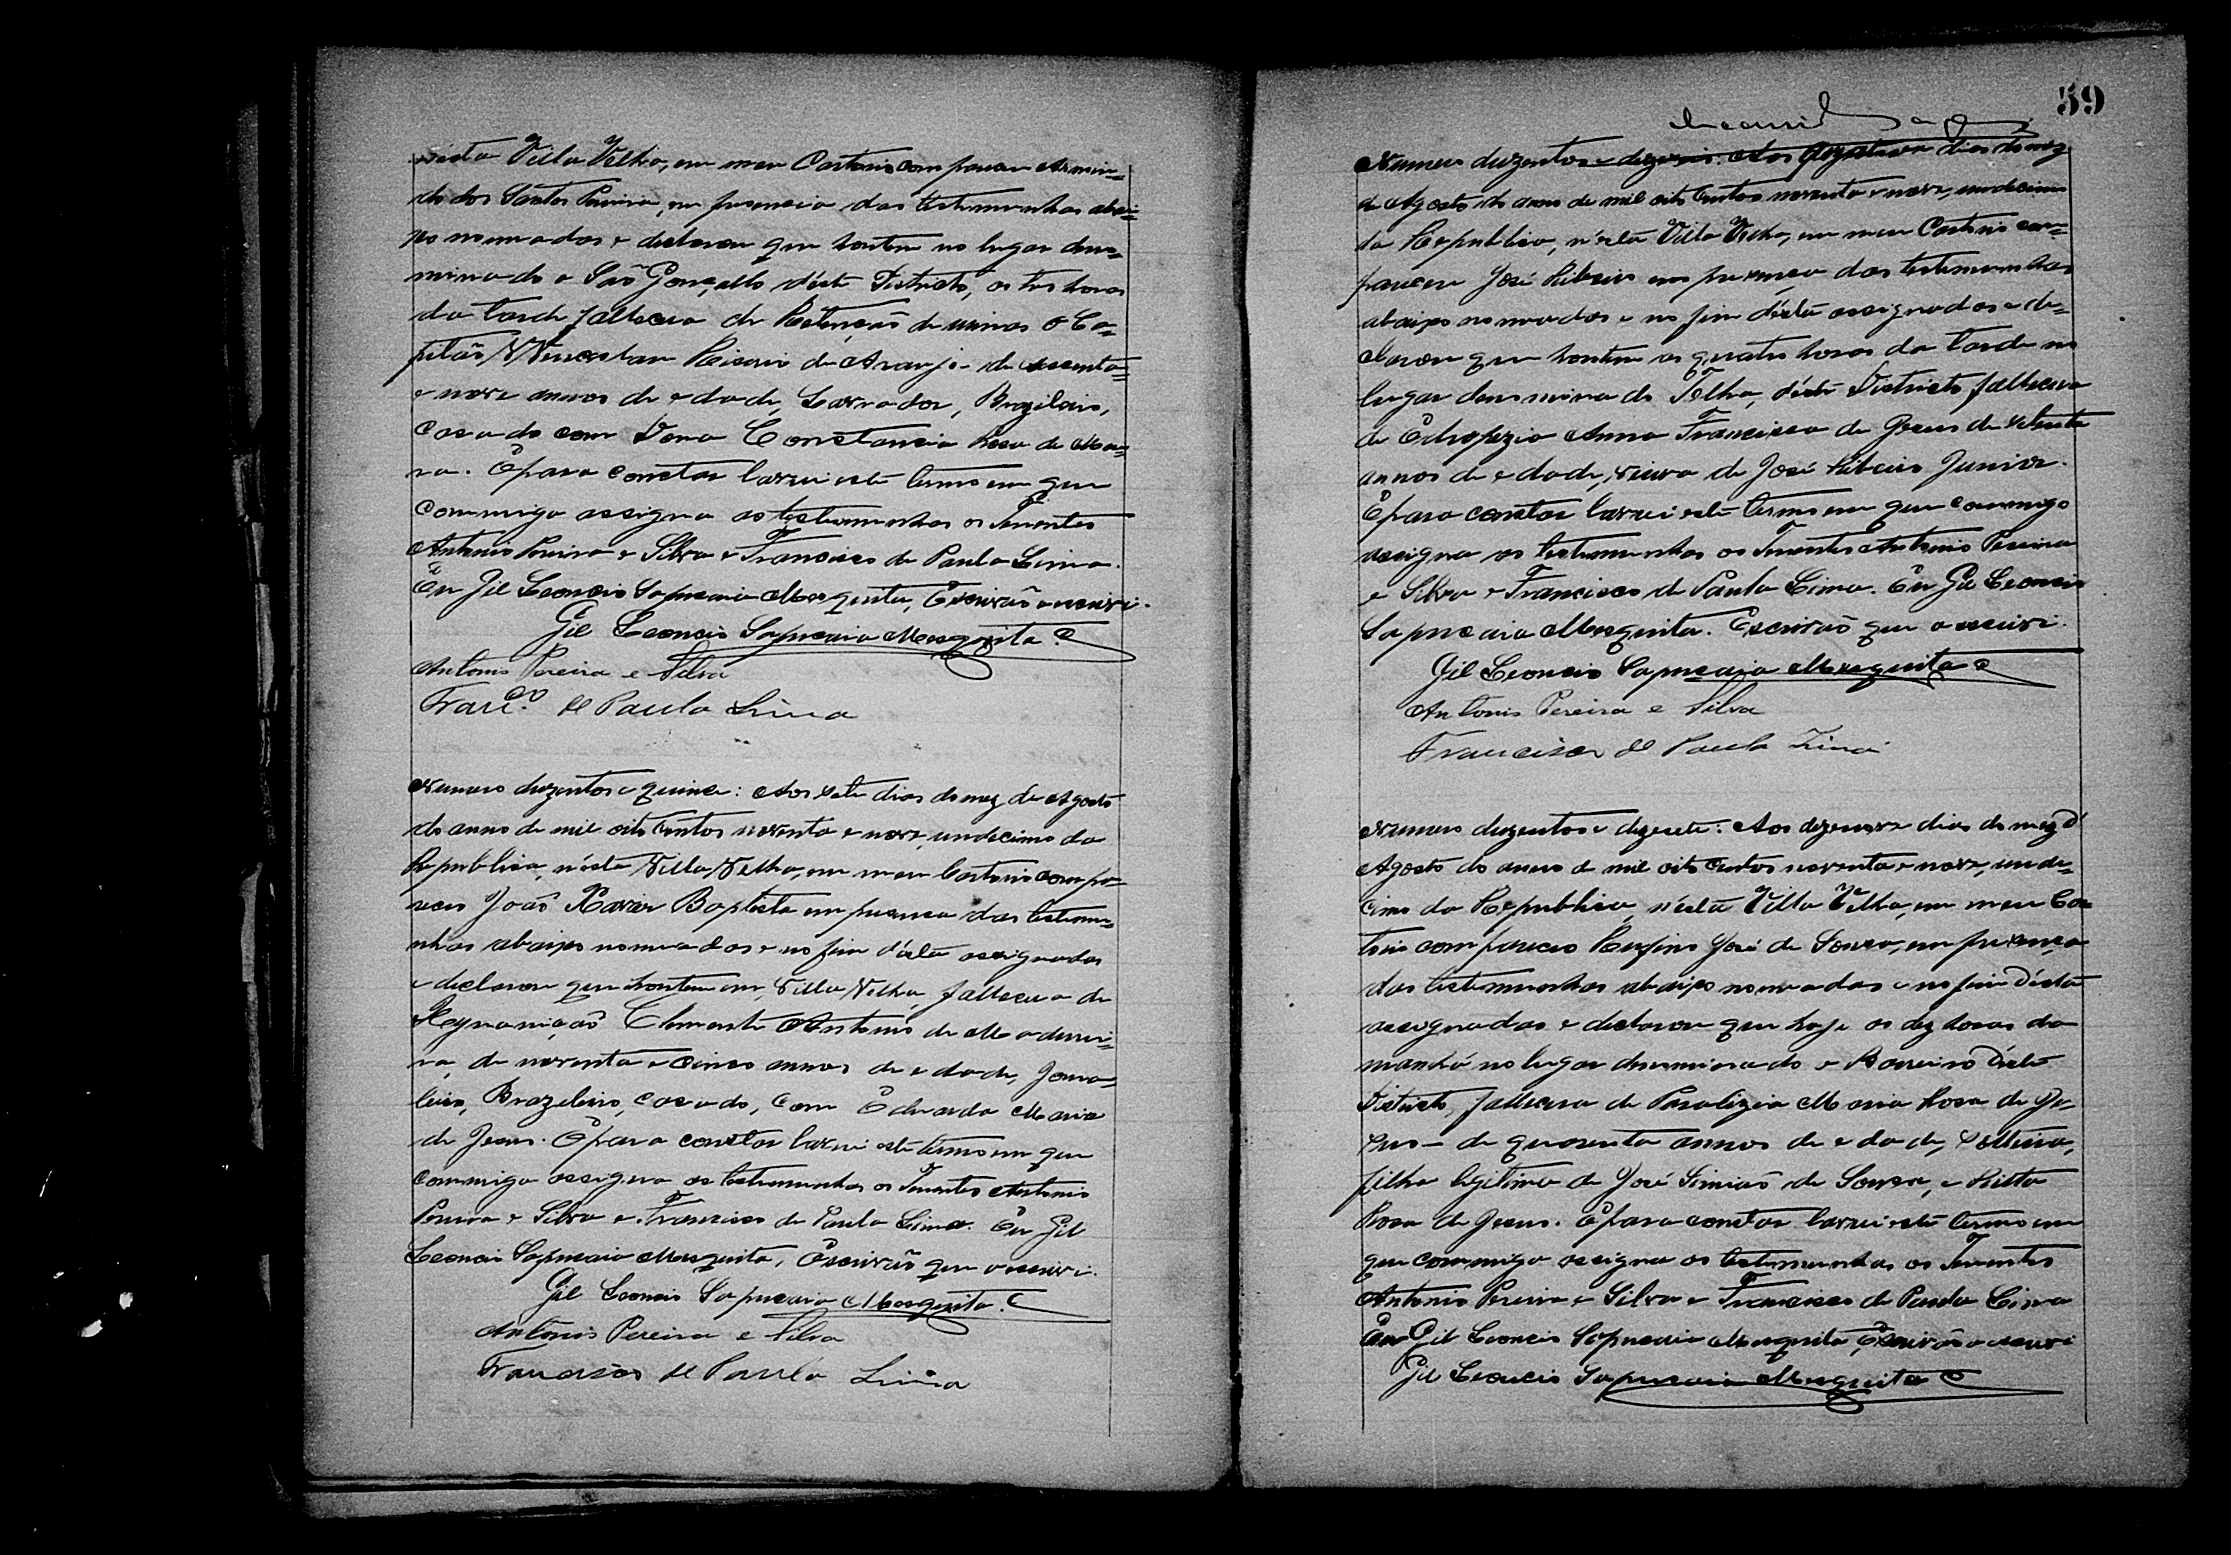 nésta Villa Velha, em meu Cartorio compareceu Armin=
do dos Santos Pereira, em presencia das testemunhas abai=
xo nomeadas e declarou que hontem no lugar deno=
minado o São Gonçallo déste Districto, as tres horas
da tarde falleceu de Retenção de urinas o Ca=
pitão Wencesláu Risério de Araujo de sessenta=
e nove annos de edade, Lavrador, Brazileiro,
casado com Dona Constancia Rosa de Mou=
ra. E para constar lavrei este termo em que
commigo assigna as testemunhas os Tenentes
Antonio Pereira e Silva e Francisco de Paula Lima.
Eu Gil Leoncio Sapucaia Mesquita, Escrivão o escrevi.
Gil Leoncio Sapucaia Mesquita
Antonio Pereira e Silva
Franc.co de Paula Lima
Numero duzentos e quinze: Aos sete dias do mez de Agosto
do anno de mil oito centos noventa e nove, undecimo da
Republica, nésta Villa Velha, em meu Cartorio compa-
receu João Xavier Baptista em presença das testemu=
nhas abaixo nomeadas e no fim désta assignadas
e declarou que hontem em Villa Velha, falleceu de
Clemente Antonio de Madurei=
ra, de noventa e cinco annos de edade, Jorna=
leiro, Brazileiro, casado, com Eduarda Maria
de Jesus. E para constar lavrei este termo em que
commigo assigna as testemunhas os Tenentes Antonio
Pereira e Silva e Francisco de Paula Lima. Eu Gil
Leoncio Sapucaia Mesquita, Escrivão que o escrevi.
Gil Leoncio Sapucaia Mesquita.
Antonio Pereira e Silva
Francisco de Paula Lima
59
Numero duzentos e dezeseis: Aos dias do mez
de Agosto do anno de mil oito centos noventa e nove, undecimo
da Republica, n'ésta Villa Velha, em meu Cartorio com=
pareceu José Ribeiro em presença das testemunhas
abaixo nomeadas e no fim désta assignadas e de=
clarou que hontem as quatro horas da tarde no
lugar denominado Telha, déste Districto falleceu
de Edropezia Anna Francisca de Jesus de setenta
annos de edade, viuva de José Ribeiro Junior.
E para constar lavrei este termo em que commigo
assigna as testemunhas os Tenentes Antonio Pereira
e Silva e Francisco de Paula Lima. Eu Gil Leoncio
Sapucaia Mesquita. Escrivão que o escrevi.
Gil Leoncio Sapucaia Mesquita
Antonio Pereira e Silva
Francisco de Paula Lima
Numero duzentos e dezesete: Aos dezenove dias do mez d'
Agosto do anno de mil oito centos noventa e nove, unde=
cimo da Republica, n'ésta Villa Velha, em meu Car
torio compareceu Rufino José de Souza, em presença
das testemunhas abaixo nomeadas e no fim désta
assignadas e declarou que hoje as dez horas da
manhã no lugar denominado o Barreiro déste
Districto, falleceu de Paralizia Maria Rosa de Je-
sus - de quarenta annos de edade, solteira,
filha legitima de José Simião de Souza, e Ritta
Rosa de Jesus. E para constar lavrei este termo em
que commigo assigna as testemunhas os Tenentes
Antonio Pereira e Silva e Francisco de Paula Lima
Eu Gil Leoncio Sapucaia Mesquita, Escrivão o escrevi
Gil Leoncio Sapucaia Mesquita